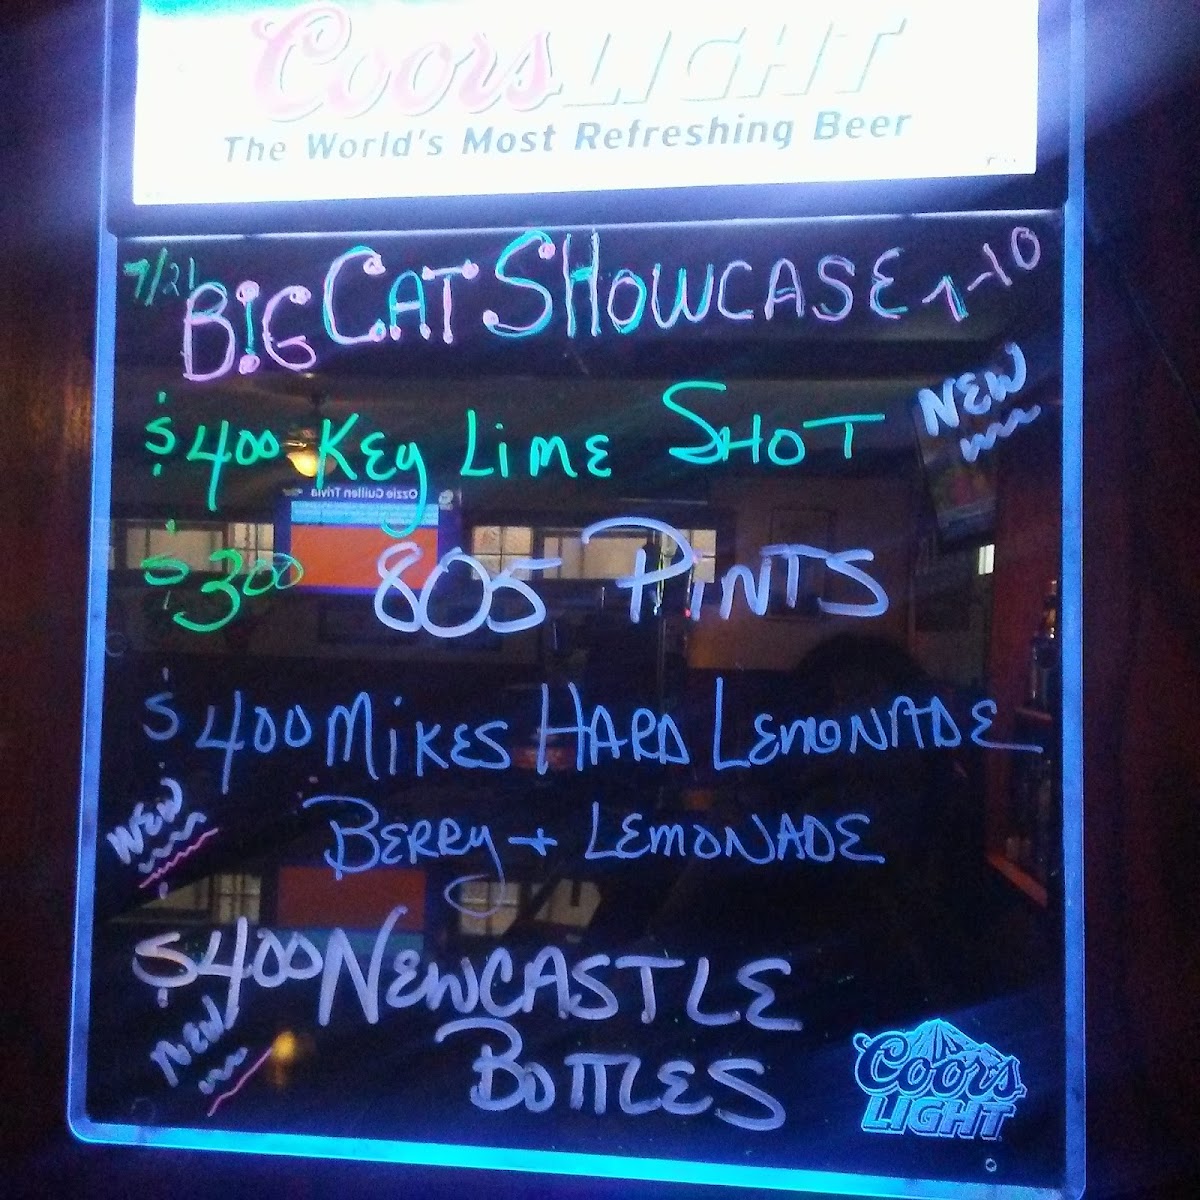 Coors LIGHT
The World's Most Refreshing Beer
7/21 BIG CAT SHOWCASE 7-10
$400 KEY LIME SHOT NEW
Ozzie Guillen Trivia
$300 805 PINTS
$400 MIKES HARD LEMONADE
NEW BERRY + LEMONADE
$400 NEWCASTLE
NEW BOTTLES
Coors
LIGHT